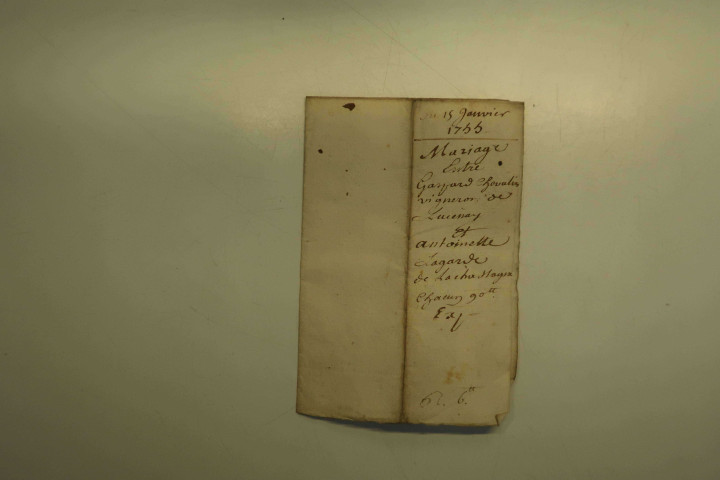 Du 15 Janvier
1755
Mariage
Entre
Gaspard Chevalier
vigneron de
Lucenay
Et
antoinette
Lagarde
de Lachassagne
90ᵗᵗ
6ᵗᵗ